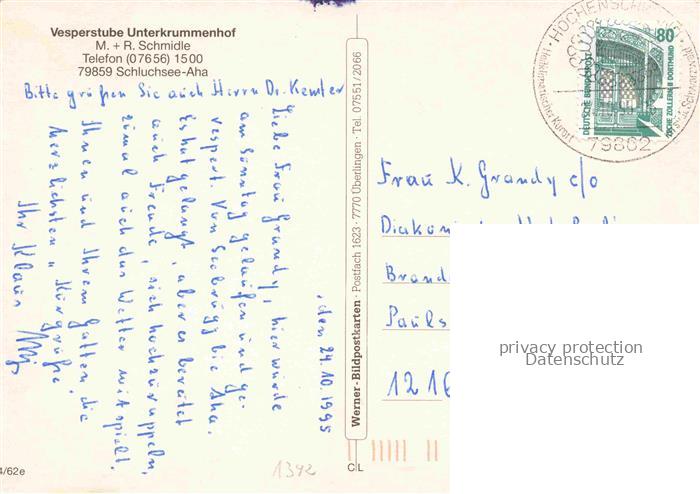 Vesperstube Unterkrummenhof
M. + R. Schmidle
Telefon (07656) 1500
79859 Schluchsee-Aha
Bitte grüßen Sie auch Herrn Dr. Kemter
, den 24.10.1995
Liebe Frau Grandy, hier wurde
am Sonntag gelaufen und ge-
vespert. Von Seebrugg bis Aha.
Es hat gelangt, aber es bereitet
auch Freude, sich hochzurappeln,
zumal auch das Wetter mitspielt.
Ihnen und Ihrem Gatten die
herzlichsten „Kurgrüße
Ihr Klaus
Werner-Bildpostkarten · Postfach 1623 · 7770 Überlingen · Tel. 07551/2066
HÖCHENSCHWAND
Heilklimatischer Kurort
79862
80
DEUTSCHE BUNDESPOST
ZECHE ZOLLERN II DORTMUND
Frau K. Grandy c/o
Diakoni
Brand
Pauls
1216
privacy protection
Datenschutz
4/62e
1342
CL